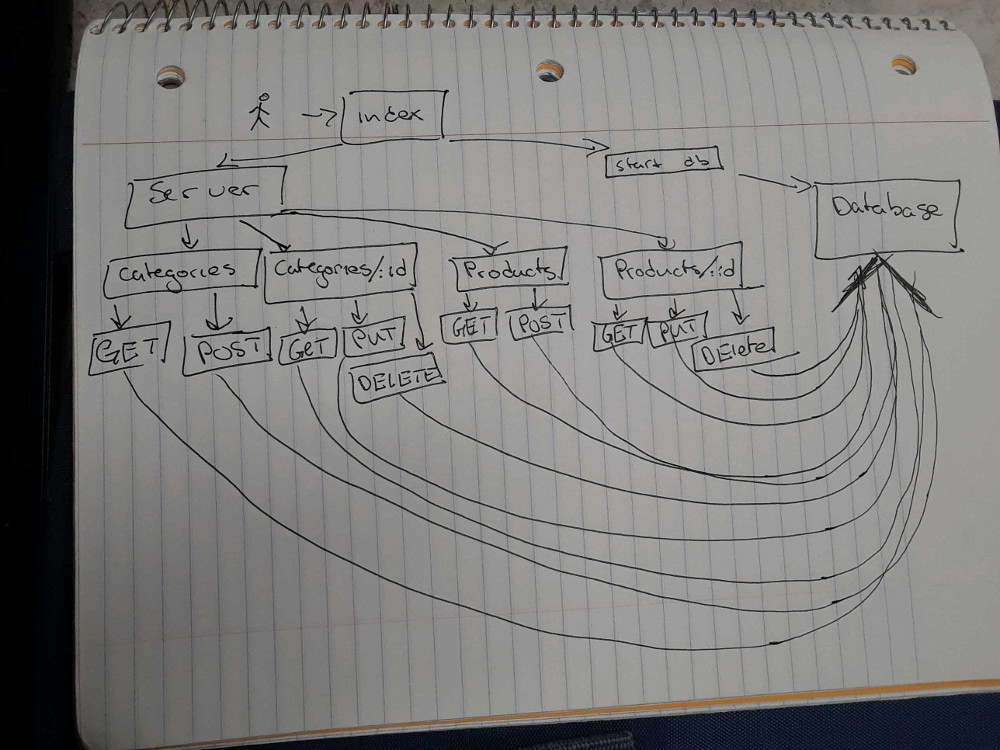 index
start db
Server
Database
Categories
Categories/:id
Products
Products/:id
GET
POST
GET
PUT
DELETE
GET
POST
GET
PUT
DElete